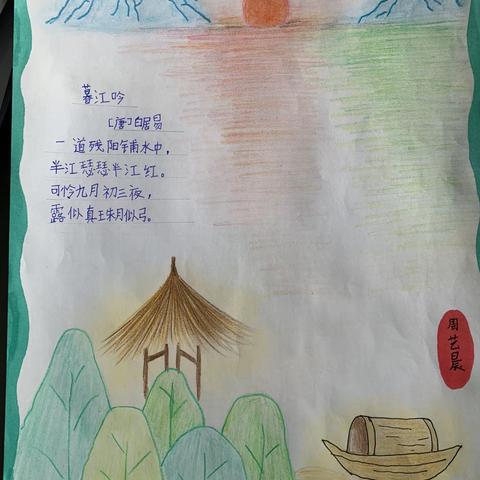 暮江吟
[唐]白居易
一道残阳铺水中，
半江瑟瑟半江红。
可怜九月初三夜，
露似真珠月似弓。
周艺晨